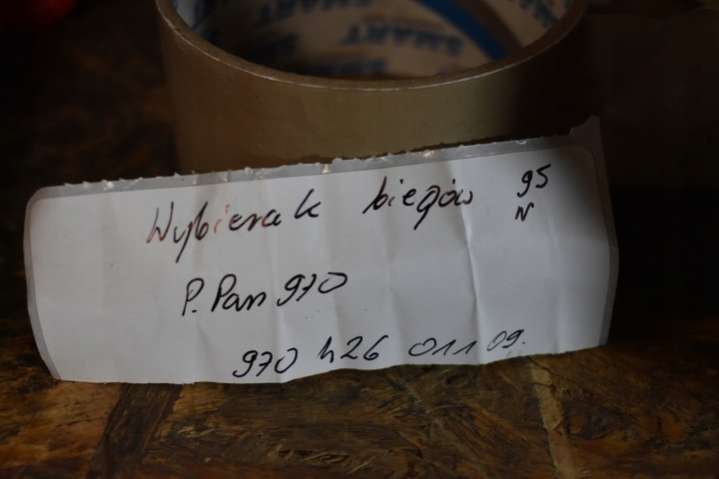 SMART
SMART
Wybierak biegów 95
N
P. Pan 970
970 426 011 09.